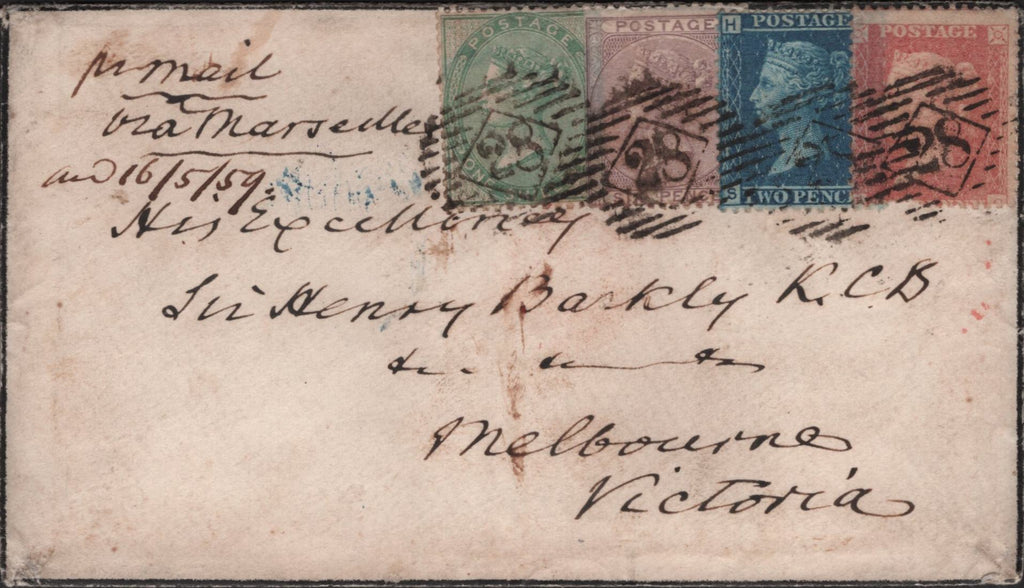 POSTAGE
POSTAGE
H POSTAGE
POSTAGE
28
28
28
S TWO PENCE
pr mail
via Marseilles
and 16/5/59.
His Excellency
Sir Henry Barkly K.C.B
Melbourne
Victoria